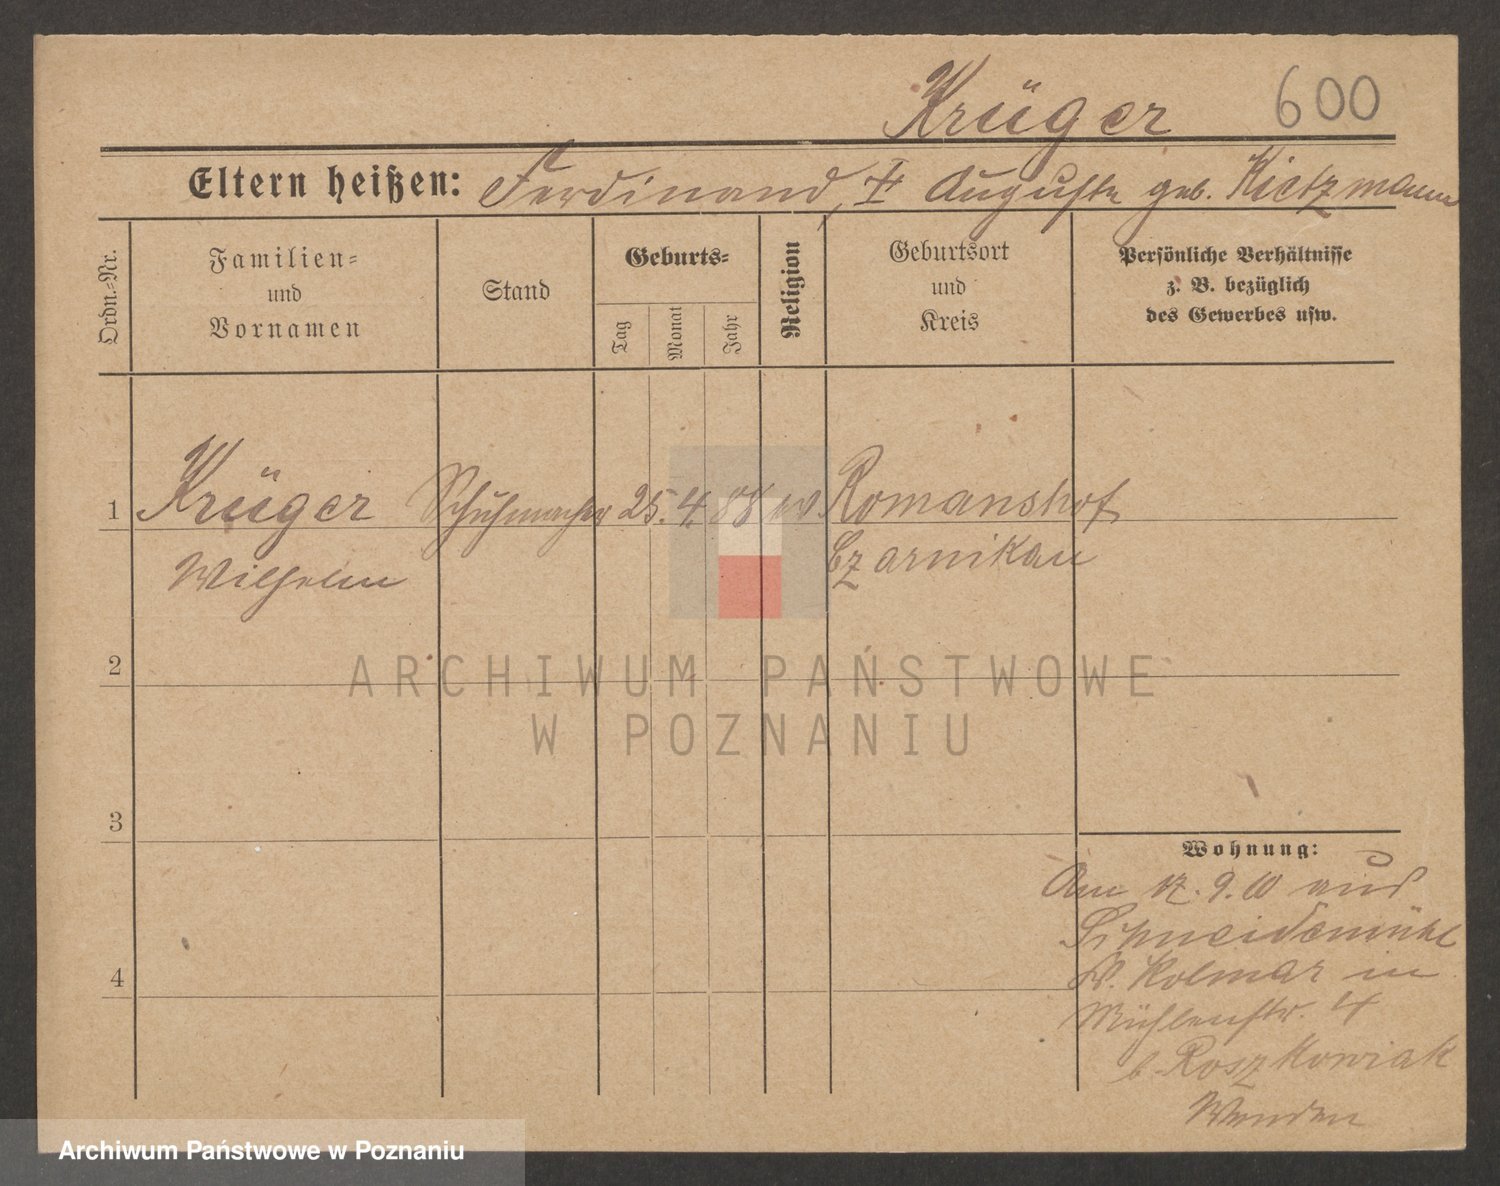 Krüger 600
Eltern heißen: Ferdinand, ‡ Auguste geb. Kietzmann
Ordn.-Nr.
Familien-
und
Vornamen
Stand
Geburts-
Tag
Monat
Jahr
Religion
Geburtsort
und
Kreis
Persönliche Verhältnisse
z. B. bezüglich
des Gewerbes usw.
1 Krüger Schuhmacher 25. 4. 88 ev Romanshof
Wilhelm Czarnikau
2
ARCHIWUM PAŃSTWOWE
W POZNANIU
3
Wohnung:
Am 17. 9. 10 aus
Schneidemühl
Kr. Kolmar in
Mühlenstr. 4
b. Roszkowiak
4
Archiwum Państwowe w Poznaniu